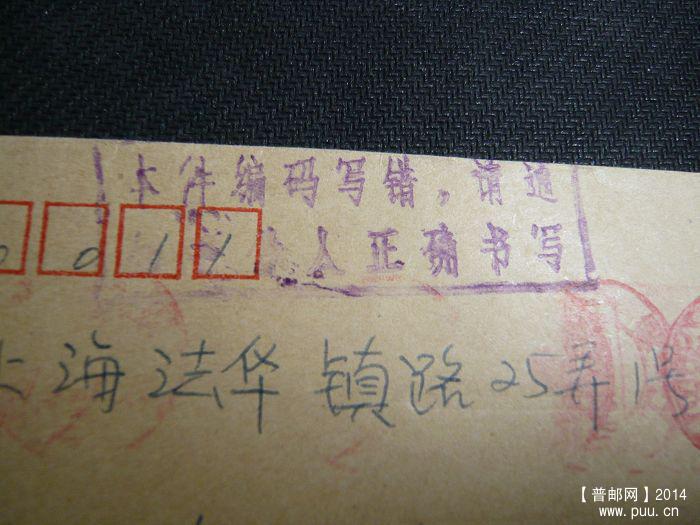 本件编码写错，请通
人正确书写
0 0 1 1
上海法华镇路25弄1号
【普邮网】2014
www.puu.cn